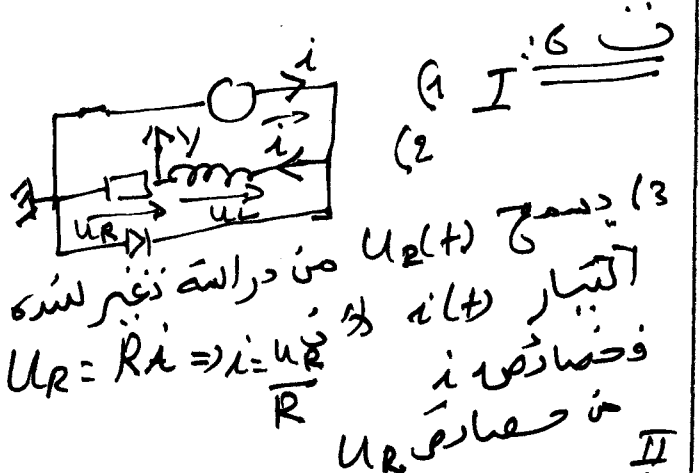 ت 6:
I (1
(2
i
i
Y
uR uL
3) يسمح uR(t) من دراسة تغير لشدة
التيار i(t) لأن
uR = Ri => i = uR/R
فخصائص i
من خصائص uR
II